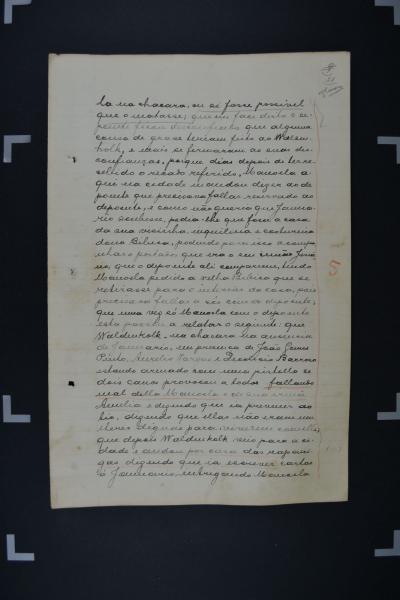 la na chacara, ou se fosse possivel
que o matasse; que em face disto o de-
poente ficou desconfiado que alguma
cousa de grave teriam feito ao Walden-
kolk, e mais se firmaram as suas des-
confianças, porque dias depois de ter re-
cebido o recado referido, Manoela a
qui na cidade mandou dizer ao de
poente que precisava fallar reservado ao
depoente, e como não queria que Janua-
rio soubesse, pedia-lhe que fosse a casa
da sua visinha, inquilina e costureira
dona Bibica, podendo para isso acompa-
nhar o portador que era o seu irmão
que o depoente ali compareceu, tendo
Manoela pedido a velha Bibica que se
retirasse para o interior da casa, pois
precisava fallar a sós com o depoente,
que uma vez só Manoela com o depoente
esta passou a relatar o seguinte: que
Waldenkolk, na chacara na ausencia
de Januario, em presença de João Gomes
Pinto, Aurelio Vargas e Deoclecio Barroso
estando armado com uma pistolla de
dois canos provocou a todos fallando
mal della Manoela e da sua irmã
Amelia e dizendo que ia promover
dizendo que ellas não eram mu-
lheres dignas para viverem
que depois Waldenkolk veio para a ci-
dade e andou por casa das rapari-
gas dizendo que ia escrever cartas
a Januario entregando Manoela
5